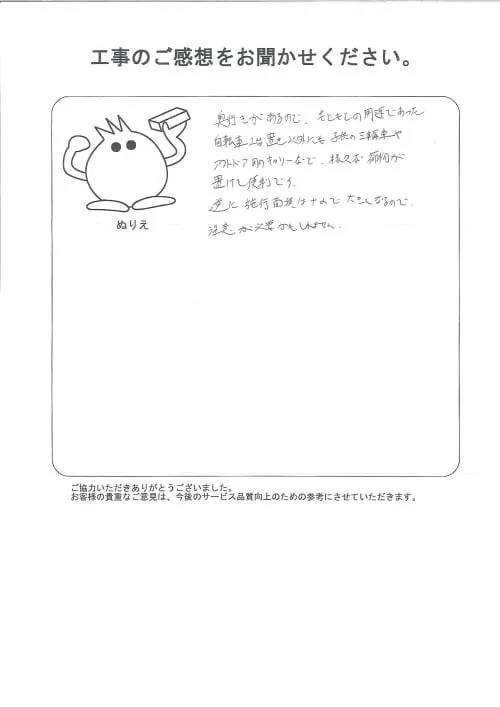 工事のご感想をお聞かせください。
奥行きがあるので、もともとの用途であった
自転車2台置き以外にも 子供の三輪車や
アウトドア用のキャリーなど、様々な荷物が
置けて便利です。
逆に 施行面積は十分で 大きくなるので、
注意が必要かもしれません。
ぬりえ
ご協力いただきありがとうございました。
お客様の貴重なご意見は、今後のサービス品質向上のための参考にさせていただきます。